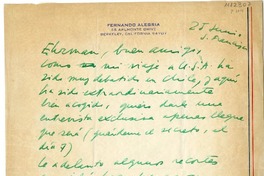 FERNANDO ALEGRIA
BERKELEY, CALIFORNIA
25 Junio,
S. Francisco
buen amigo,
como mi viaje a U.S.A. ha
sido muy debatido en Chile, y aquí
ha sido extraordinariamente
bien acogido, quiero darle una
entrevista exclusiva apenas llegue
que será (guárdeme el secreto, el
día 7)
Le adelanto algunos recortes